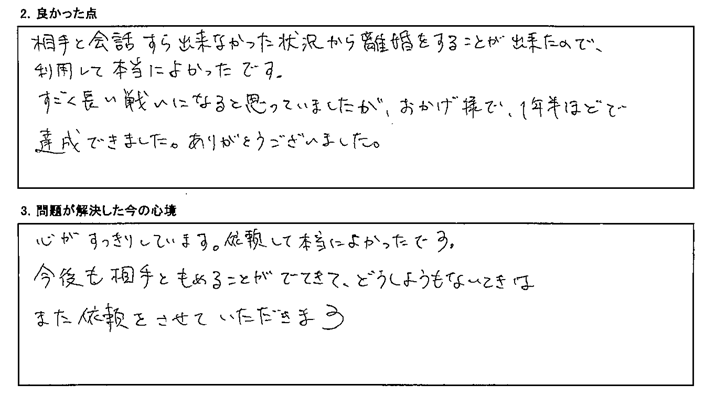 2. 良かった点
相手と会話すら出来なかった状況から離婚をすることが出来たので、
利用して本当によかったです.
すごく長い戦いになると思っていましたが、おかげ様で、1年半ほどで
達成できました。ありがとうございました。
3. 問題が解決した今の心境
心がすっきりしています。依頼して本当によかったです.
今後も相手ともめることがでてきて、どうしようもないときは
また依頼をさせていただきます